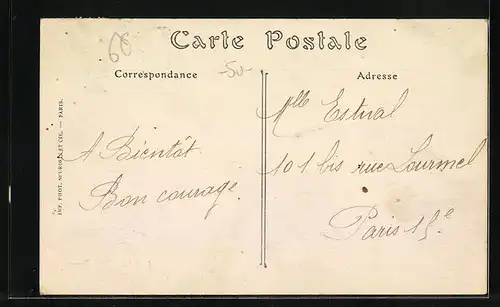 Carte Postale
Correspondance
Adresse
-50-
A Bientôt
Bon courage.
Mlle Estval
101 bis rue Lourmel
Paris 15e.
IMP. PHOT. NEURDEIN ET CIE. — PARIS.